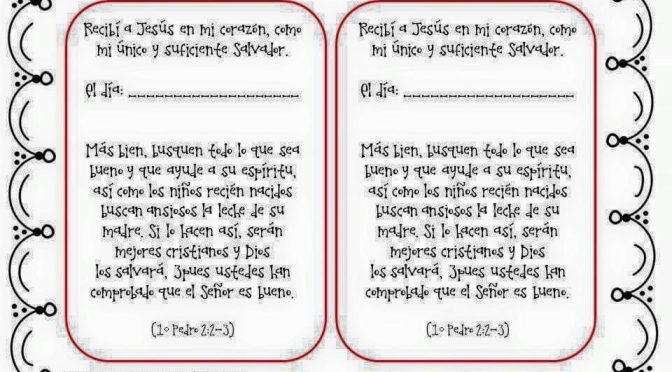 Recibí a Jesús en mi corazón, como
mi único y suficiente Salvador.
El día: ___________________
Más bien, busquen todo lo que sea
bueno y que ayude a su espíritu,
así como los niños recién nacidos
buscan ansiosos la leche de su
madre. Si lo hacen así, serán
mejores cristianos y Dios
los salvará, 3pues ustedes han
comprobado que el Señor es bueno.
(1º Pedro 2:2-3)
Recibí a Jesús en mi corazón, como
mi único y suficiente Salvador.
El día: ___________________
Más bien, busquen todo lo que sea
bueno y que ayude a su espíritu,
así como los niños recién nacidos
buscan ansiosos la leche de su
madre. Si lo hacen así, serán
mejores cristianos y Dios
los salvará, 3pues ustedes han
comprobado que el Señor es bueno.
(1º Pedro 2:2-3)